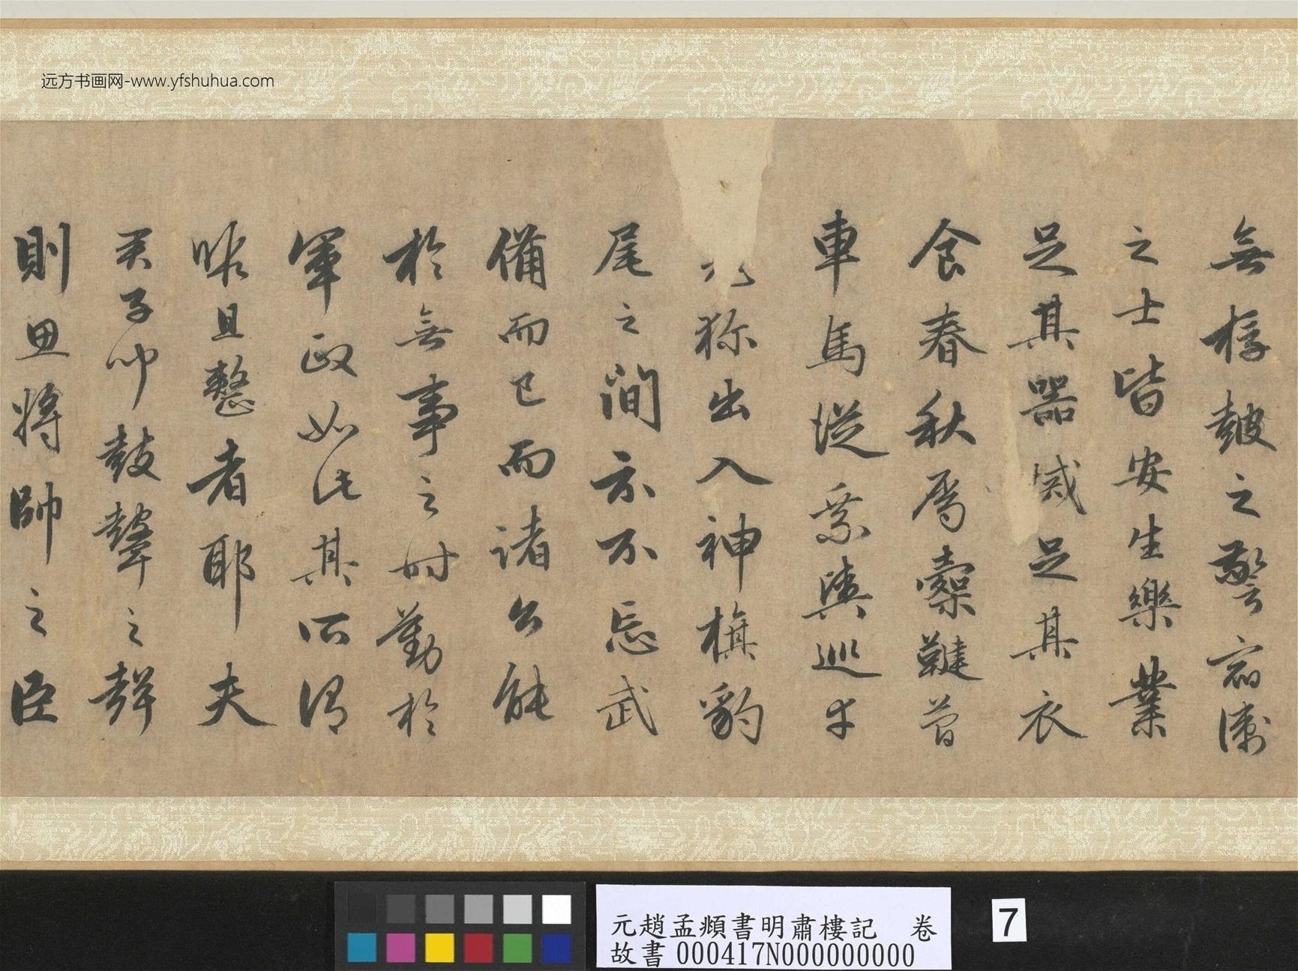 远方书画网-www.yfshuhua.com
無桴皷之警宿衛
之士皆安生樂業
足其器械足其衣
食春秋屬櫜鞬曽
車馬從乗輿巡守
称出入神旗豹
尾之間示不忘武
備而已而諸公能
於無事之时勤於
軍政如此其所謂
昕且整者耶夫
君子听鼓鼙之聲
則思將帥之臣
元趙孟頫書明肅樓記 卷
故書 000417N000000000
7